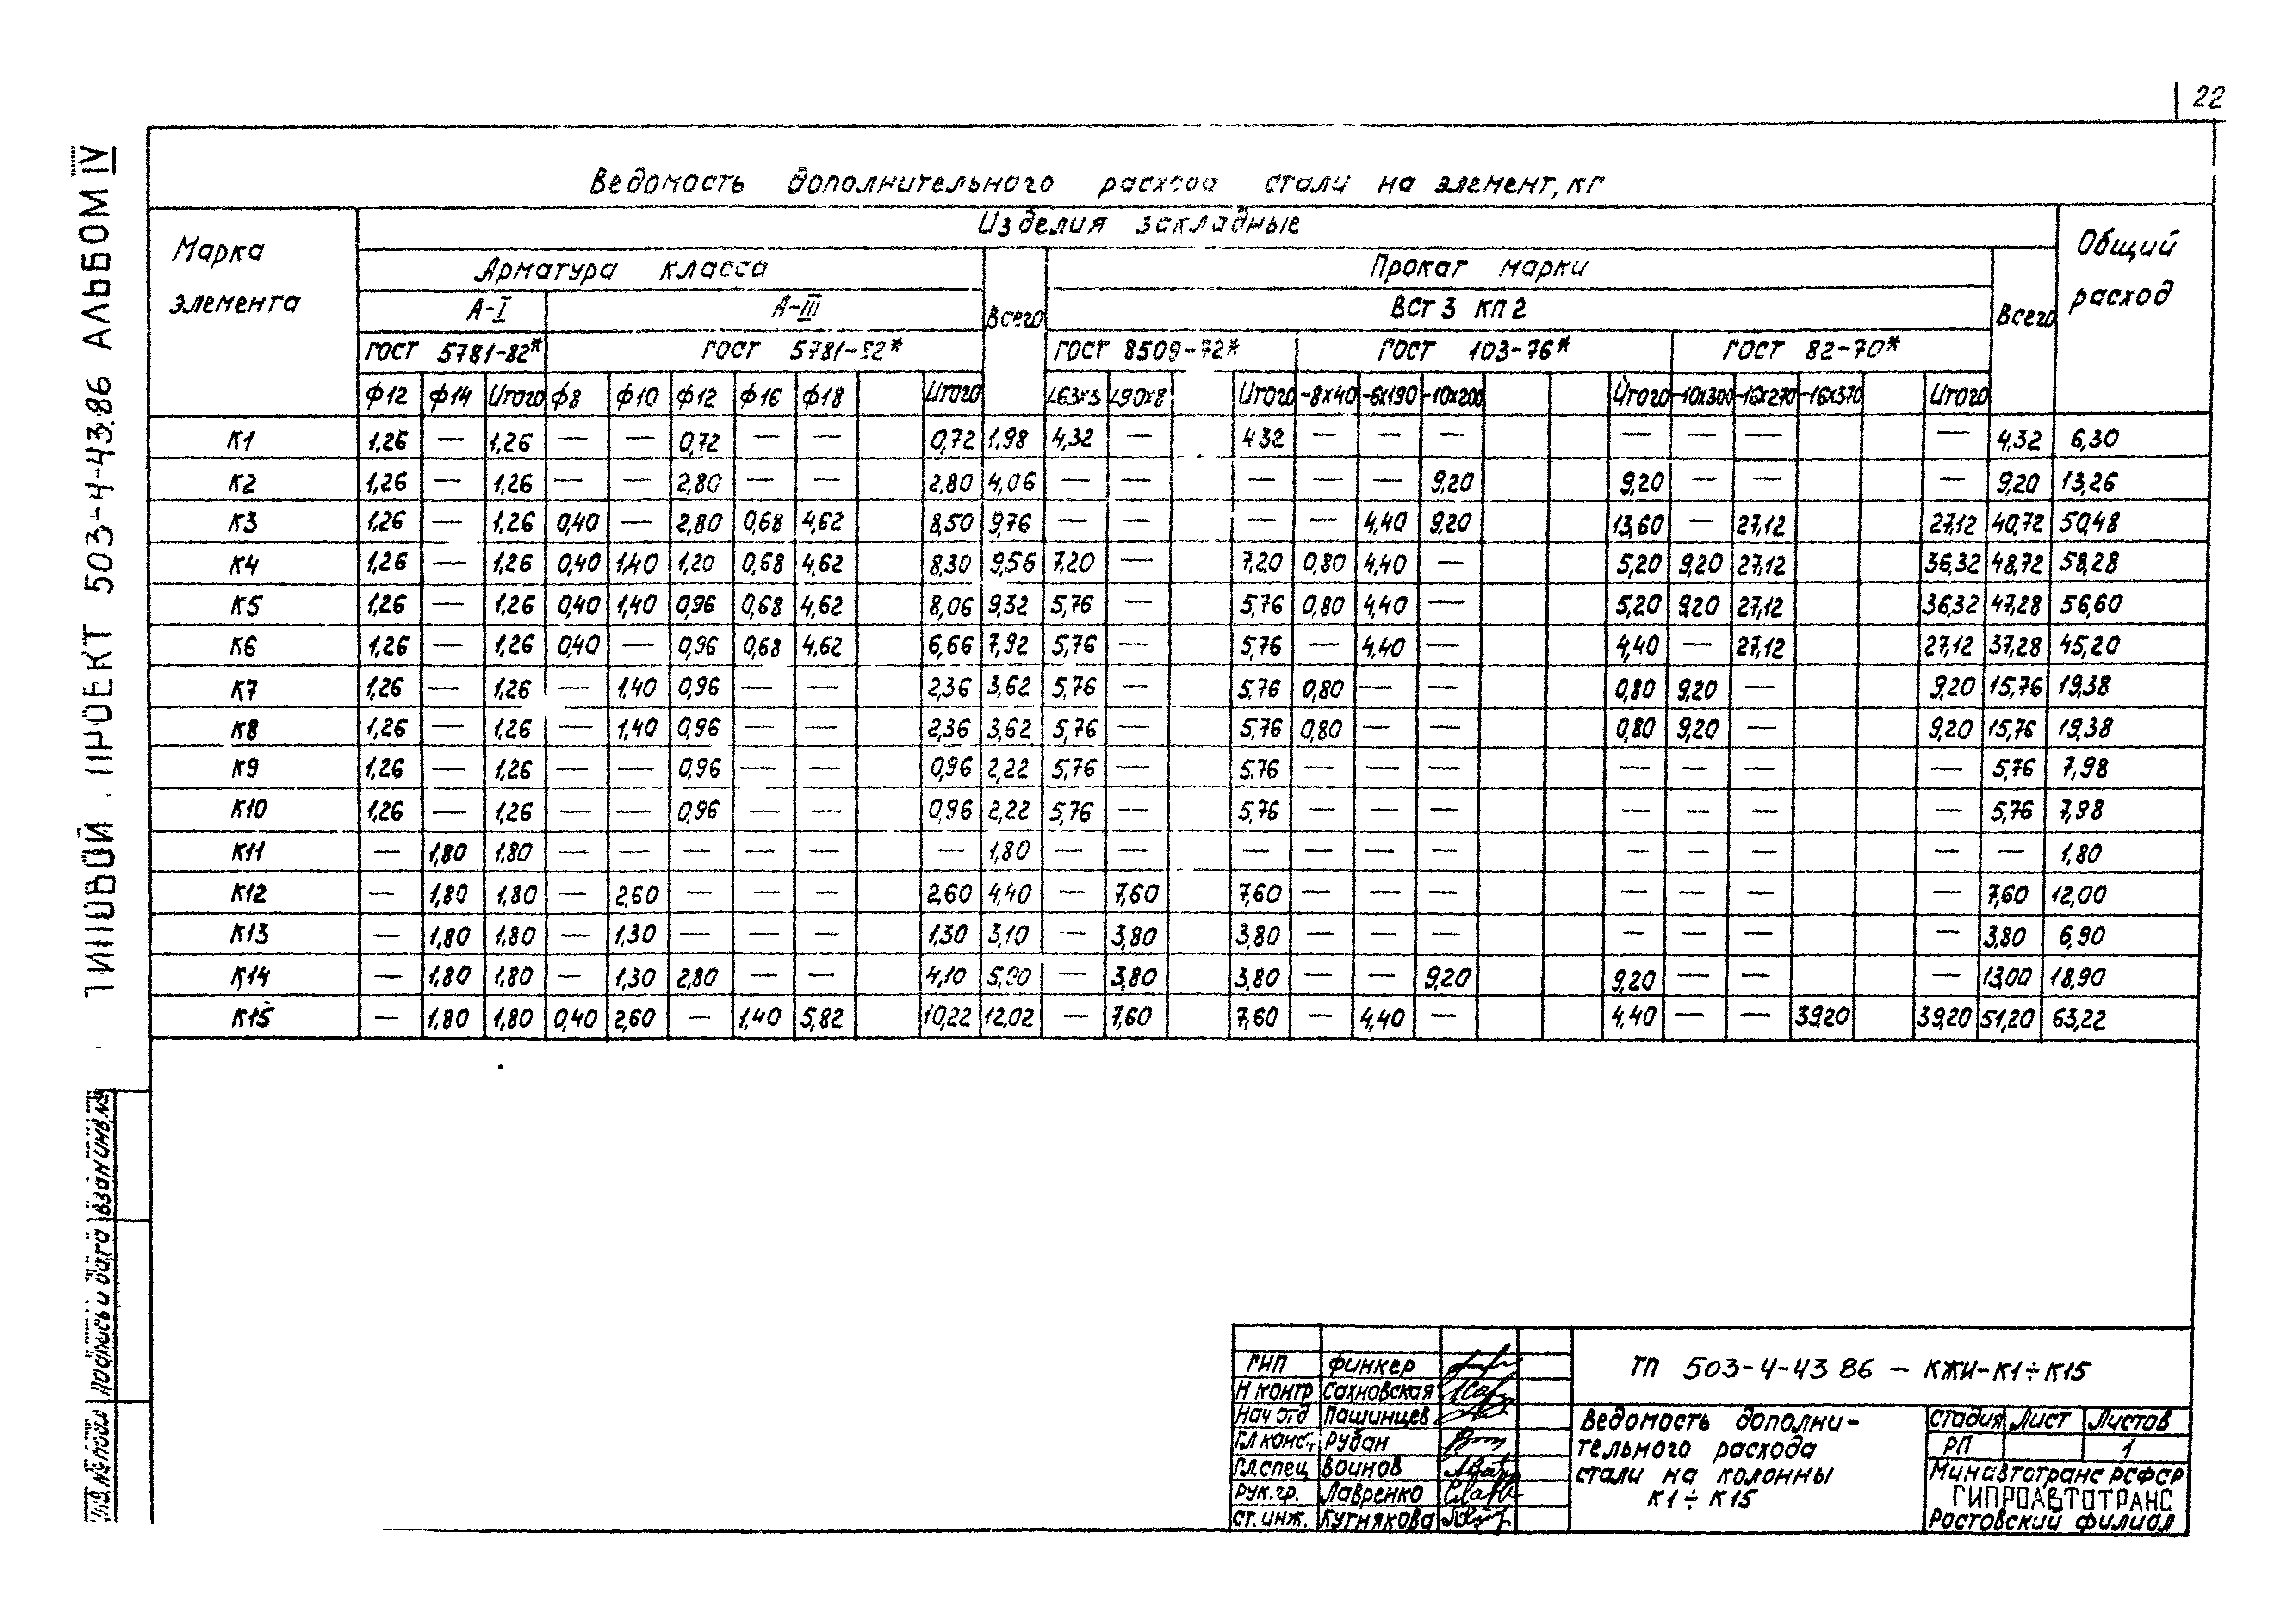 22
ТИПОВОЙ ПРОЕКТ 503-4-43.86 АЛЬБОМ IV
Ведомость дополнительного расхода стали на элемент, кг
Марка элемента
Изделия закладные
Общий расход
Арматура класса
Всего
Прокат марки
Всего
А-I
А-III
ВСт 3 кп 2
ГОСТ 5781-82*
ГОСТ 5781-82*
ГОСТ 8509-72*
ГОСТ 103-76*
ГОСТ 82-70*
Ф12 Ф14 Итого Ф8 Ф10 Ф12 Ф16 Ф18 Итого L63х5 L90х8 Итого -8х40 -6х190 -10х200 Итого -10х300 -16х270 -16х370 Итого
К1 1,26 — 1,26 — — 0,72 — — 0,72 1,98 4,32 — 4 32 — — — — — — — 4,32 6,30
К2 1,26 — 1,26 — — 2,80 — — 2,80 4,06 — — — — — 9,20 9,20 — — — 9,20 13,26
К3 1,26 — 1,26 0,40 — 2,80 0,68 4,62 8,50 9,76 — — — — 4,40 9,20 13,60 — 27,12 27,12 40,72 50,48
К4 1,26 — 1,26 0,40 1,40 1,20 0,68 4,62 8,30 9,56 7,20 — 7,20 0,80 4,40 — 5,20 9,20 27,12 36,32 48,72 58,28
К5 1,26 — 1,26 0,40 1,40 0,96 0,68 4,62 8,06 9,32 5,76 — 5,76 0,80 4,40 — 5,20 9,20 27,12 36,32 47,28 56,60
К6 1,26 — 1,26 0,40 — 0,96 0,68 4,62 6,66 7,92 5,76 — 5,76 — 4,40 — 4,40 — 27,12 27,12 37,28 45,20
К7 1,26 — 1,26 — 1,40 0,96 — — 2,36 3,62 5,76 — 5,76 0,80 — — 0,80 9,20 — 9,20 15,76 19,38
К8 1,26 — 1,26 — 1,40 0,96 — — 2,36 3,62 5,76 — 5,76 0,80 — — 0,80 9,20 — 9,20 15,76 19,38
К9 1,26 — 1,26 — — 0,96 — — 0,96 2,22 5,76 — 5,76 — — — — — — — 5,76 7,98
К10 1,26 — 1,26 — — 0,96 — — 0,96 2,22 5,76 — 5,76 — — — — — — — 5,76 7,98
К11 — 1,80 1,80 — — — — — — 1,80 — — — — — — — — — — — 1,80
К12 — 1,80 1,80 — 2,60 — — — 2,60 4,40 — 7,60 7,60 — — — — — — — 7,60 12,00
К13 — 1,80 1,80 — 1,30 — — — 1,30 3,10 — 3,80 3,80 — — — — — — — 3,80 6,90
К14 — 1,80 1,80 — 1,30 2,80 — — 4,10 5,90 — 3,80 3,80 — — 9,20 9,20 — — — 13,00 18,90
К15 — 1,80 1,80 0,40 2,60 — 1,40 5,82 10,22 12,02 — 7,60 7,60 — 4,40 — 4,40 — — 39,20 39,20 51,20 63,22
Взам инв.№
Подпись и дата
Инв.№ подл
ГИП Финкер
Н контр Сахновская
Нач отд Пашинцев
Гл конст Рубан
Гл.спец Воинов
Рук.гр. Лавренко
Ст. инж. Кутнякова
ТП 503-4-43 86 - КЖИ-К1÷К15
Ведомость дополни-
тельного расхода
стали на колонны
К1÷К15
Стадия Лист Листов
РП 1
Минавтотранс РСФСР
ГИПРОАВТОТРАНС
Ростовский филиал